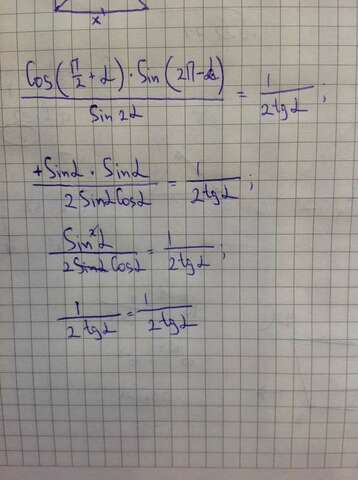 x
Cos(π/2 + α) · Sin(2π - α) / Sin 2α = 1 / 2 tg α ;
+ Sin α · Sin α / 2 Sin α Cos α = 1 / 2 tg α ;
Sin² α / 2 Sin α Cos α = 1 / 2 tg α ;
1 / 2 tg α = 1 / 2 tg α